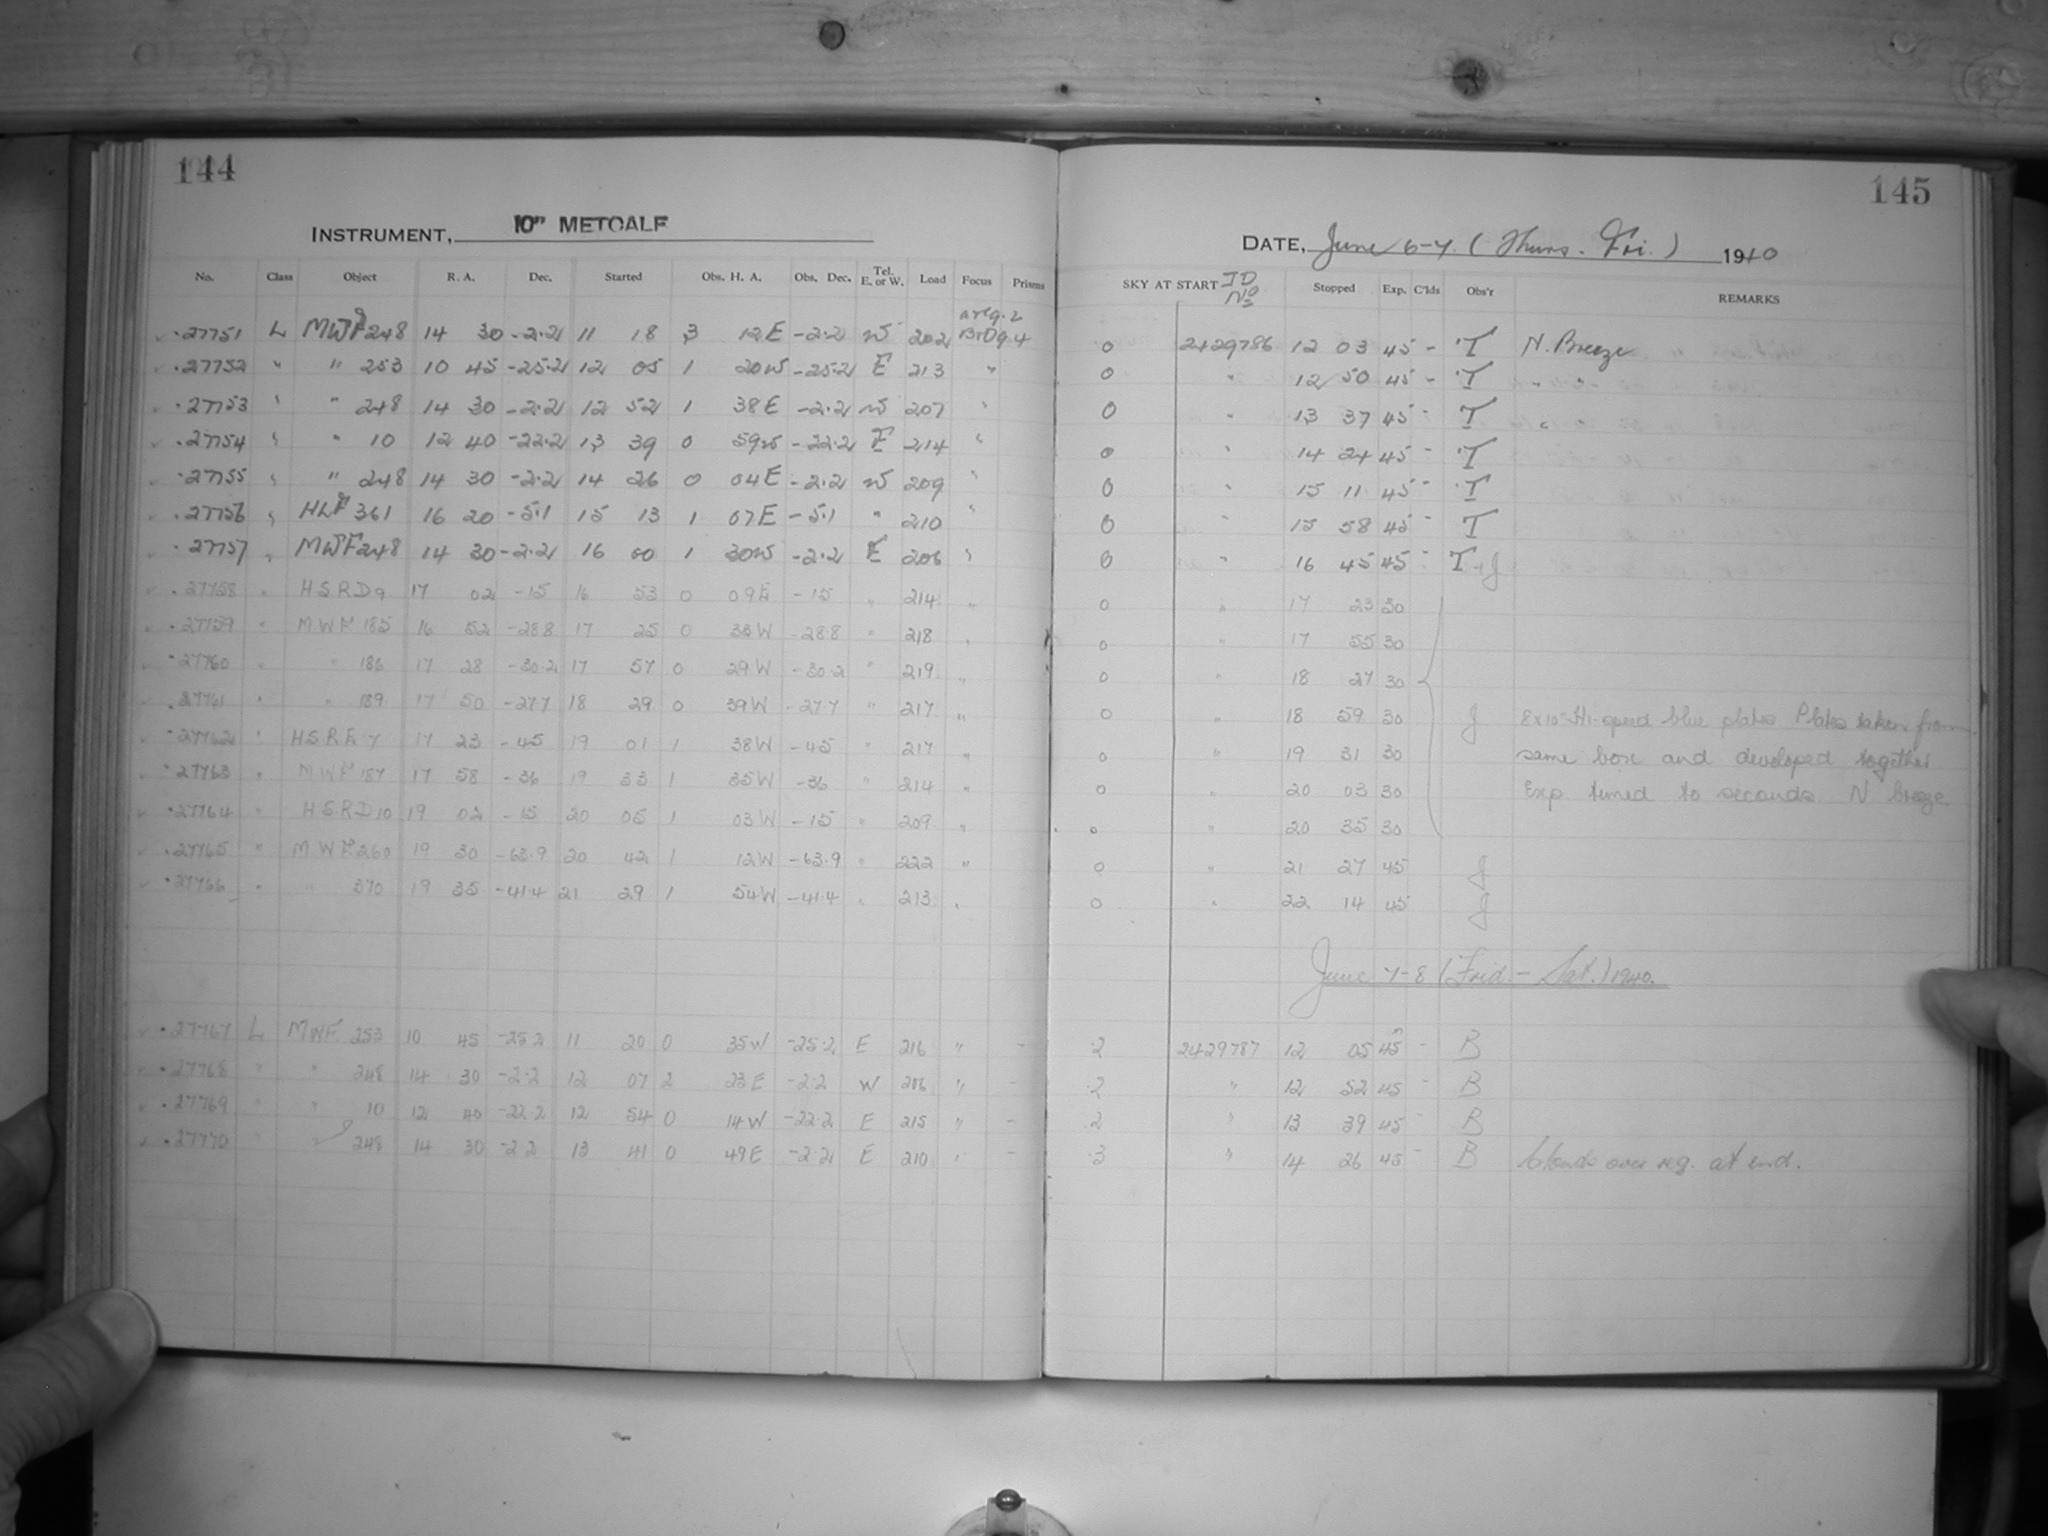 144
INSTRUMENT, 10" METCALF
No. Class Object R. A. Dec. Started Obs. H. A. Obs. Dec. Tel. E. or W. Load Focus Prisms
27751 L MWF 248 14 30 -2.2 11 18 3 12E -2.2 W 202
27752 " " 253 10 45 -25.2 12 05 1 20W -25.2 E 213 "
27753 " " 248 14 30 -2.2 12 52 1 38E -2.2 W 207 "
27754 " " 10 12 40 -22.2 13 39 0 59W -22.2 E 214 "
27755 " " 248 14 30 -2.2 14 26 0 04E -2.2 W 209 "
27756 " HLF 361 16 20 -5.1 15 13 1 07E -5.1 " 210 "
27757 " MWF 248 14 30 -2.2 16 00 1 30W -2.2 E 206 "
27758 " HSRD9 17 02 -15 16 53 0 09E -15 " 214 "
27759 " MWF 185 16 52 -28.8 17 25 0 33W -28.8 " 218 "
27760 " " 186 17 28 -30.2 17 57 0 29W -30.2 " 219 "
27761 " " 189 17 50 -27.7 18 29 0 39W -27.7 " 217 "
27762 " HSRE 7 17 23 -45 19 01 1 38W -45 " 217 "
27763 " MWF 187 17 58 -36 19 33 1 35W -36 " 214 "
27764 " HSRD10 19 02 -15 20 05 1 03W -15 " 209 "
27765 " MWF 260 19 30 -63.9 20 42 1 12W -63.9 " 222 "
27766 " " 370 19 35 -41.4 21 29 1 54W -41.4 " 213 "
27767 L MWF 253 10 45 -25.2 11 20 0 35W -25.2 E 216 " -
27768 " " 248 14 30 -2.2 12 07 2 23E -2.2 W 206 " -
27769 " " 10 12 40 -22.2 12 54 0 14W -22.2 E 215 " -
27770 " " 248 14 30 -2.2 13 41 0 49E -2.2 E 210 " -
145
DATE, June 6-7 (Thurs. - Fri.) 1940
SKY AT START JD No Stopped Exp. C'lds Obs'r REMARKS
0 2429786 12 03 45 - T N. Breeze
0 " 12 50 45 - T " "
0 " 13 37 45 - T " "
0 " 14 24 45 - T
0 " 15 11 45 - T
0 " 15 58 45 - T
0 " 16 45 45 - T+J
0 " 17 23 30
0 " 17 55 30
0 " 18 27 30
0 " 18 59 30 J 8x10" Hi-speed blue plates Plates taken from
0 " 19 31 30 same box and developed together
0 " 20 03 30 Exp timed to seconds N breeze
0 " 20 35 30
0 " 21 27 45 J
0 " 22 14 45 J
June 7-8 (Frid. - Sat.) 1940.
.2 2429787 12 05 45 - B
.2 " 12 52 45 - B
.2 " 13 39 45 - B
.3 " 14 26 45 - B Clouds over reg. at end.